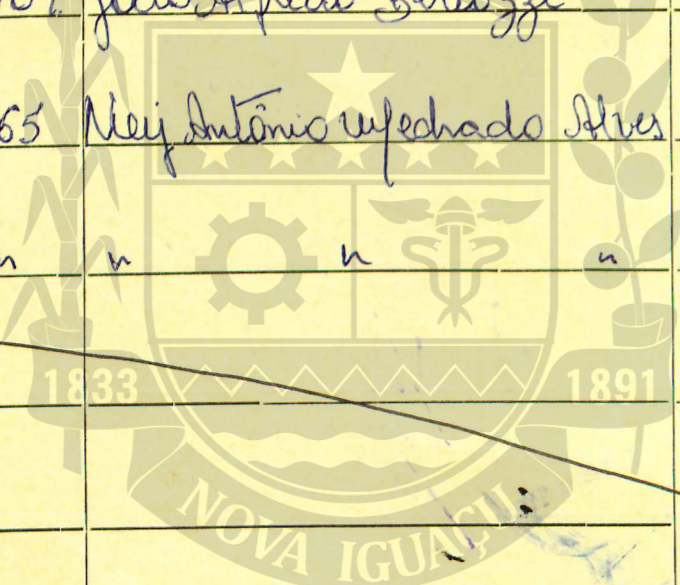 65 Neij Antônio Machado Alves
" " " "
1833 1891
NOVA IGUAÇU